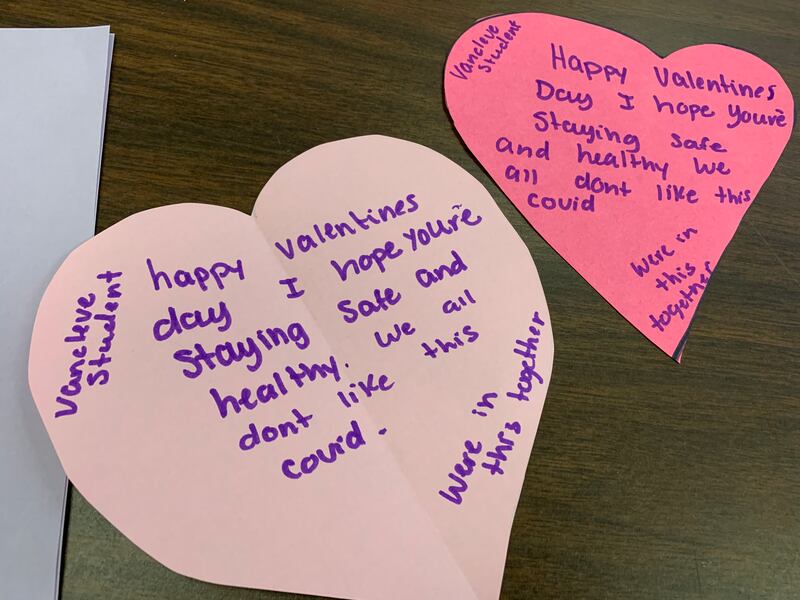 Vancleve
Student
happy valentines
day I hope you're
staying safe and
healthy. We all
dont like this
covid.
Were in
this together
Vancleve
Student
Happy Valentines
Day I hope you're
Staying safe
and healthy We
all dont like this
covid
Were in
this
together